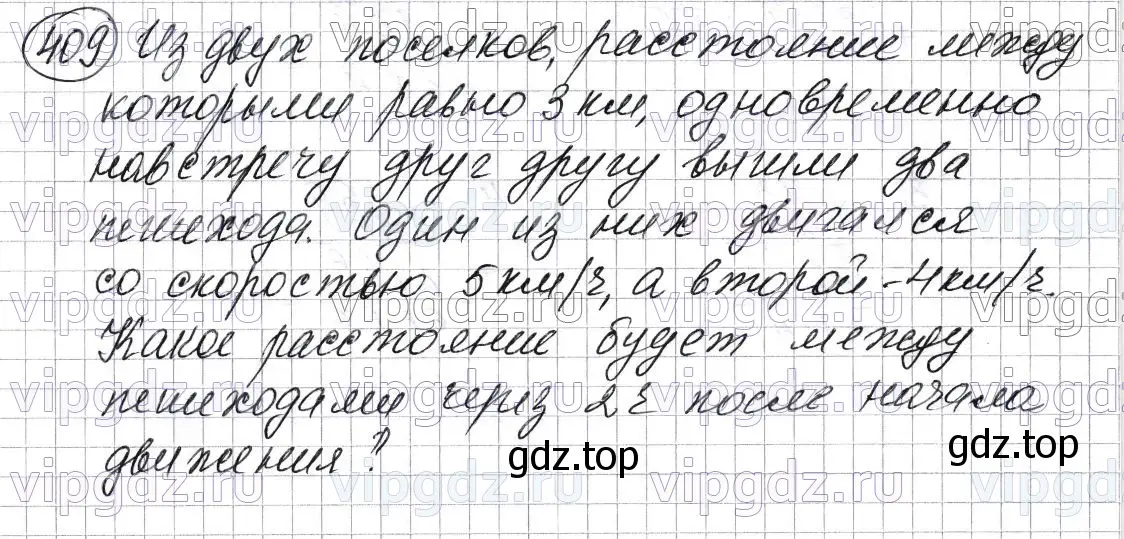 409 Из двух поселков, расстояние между
которыми равно 3 км, одновременно
навстречу друг другу вышли два
пешехода. Один из них двигался
со скоростью 5 км/ч, а второй - 4 км/ч.
Какое расстояние будет между
пешеходами через 2 ч после начала
движения?
gdz.top
gdz.top
vipgdz.ru